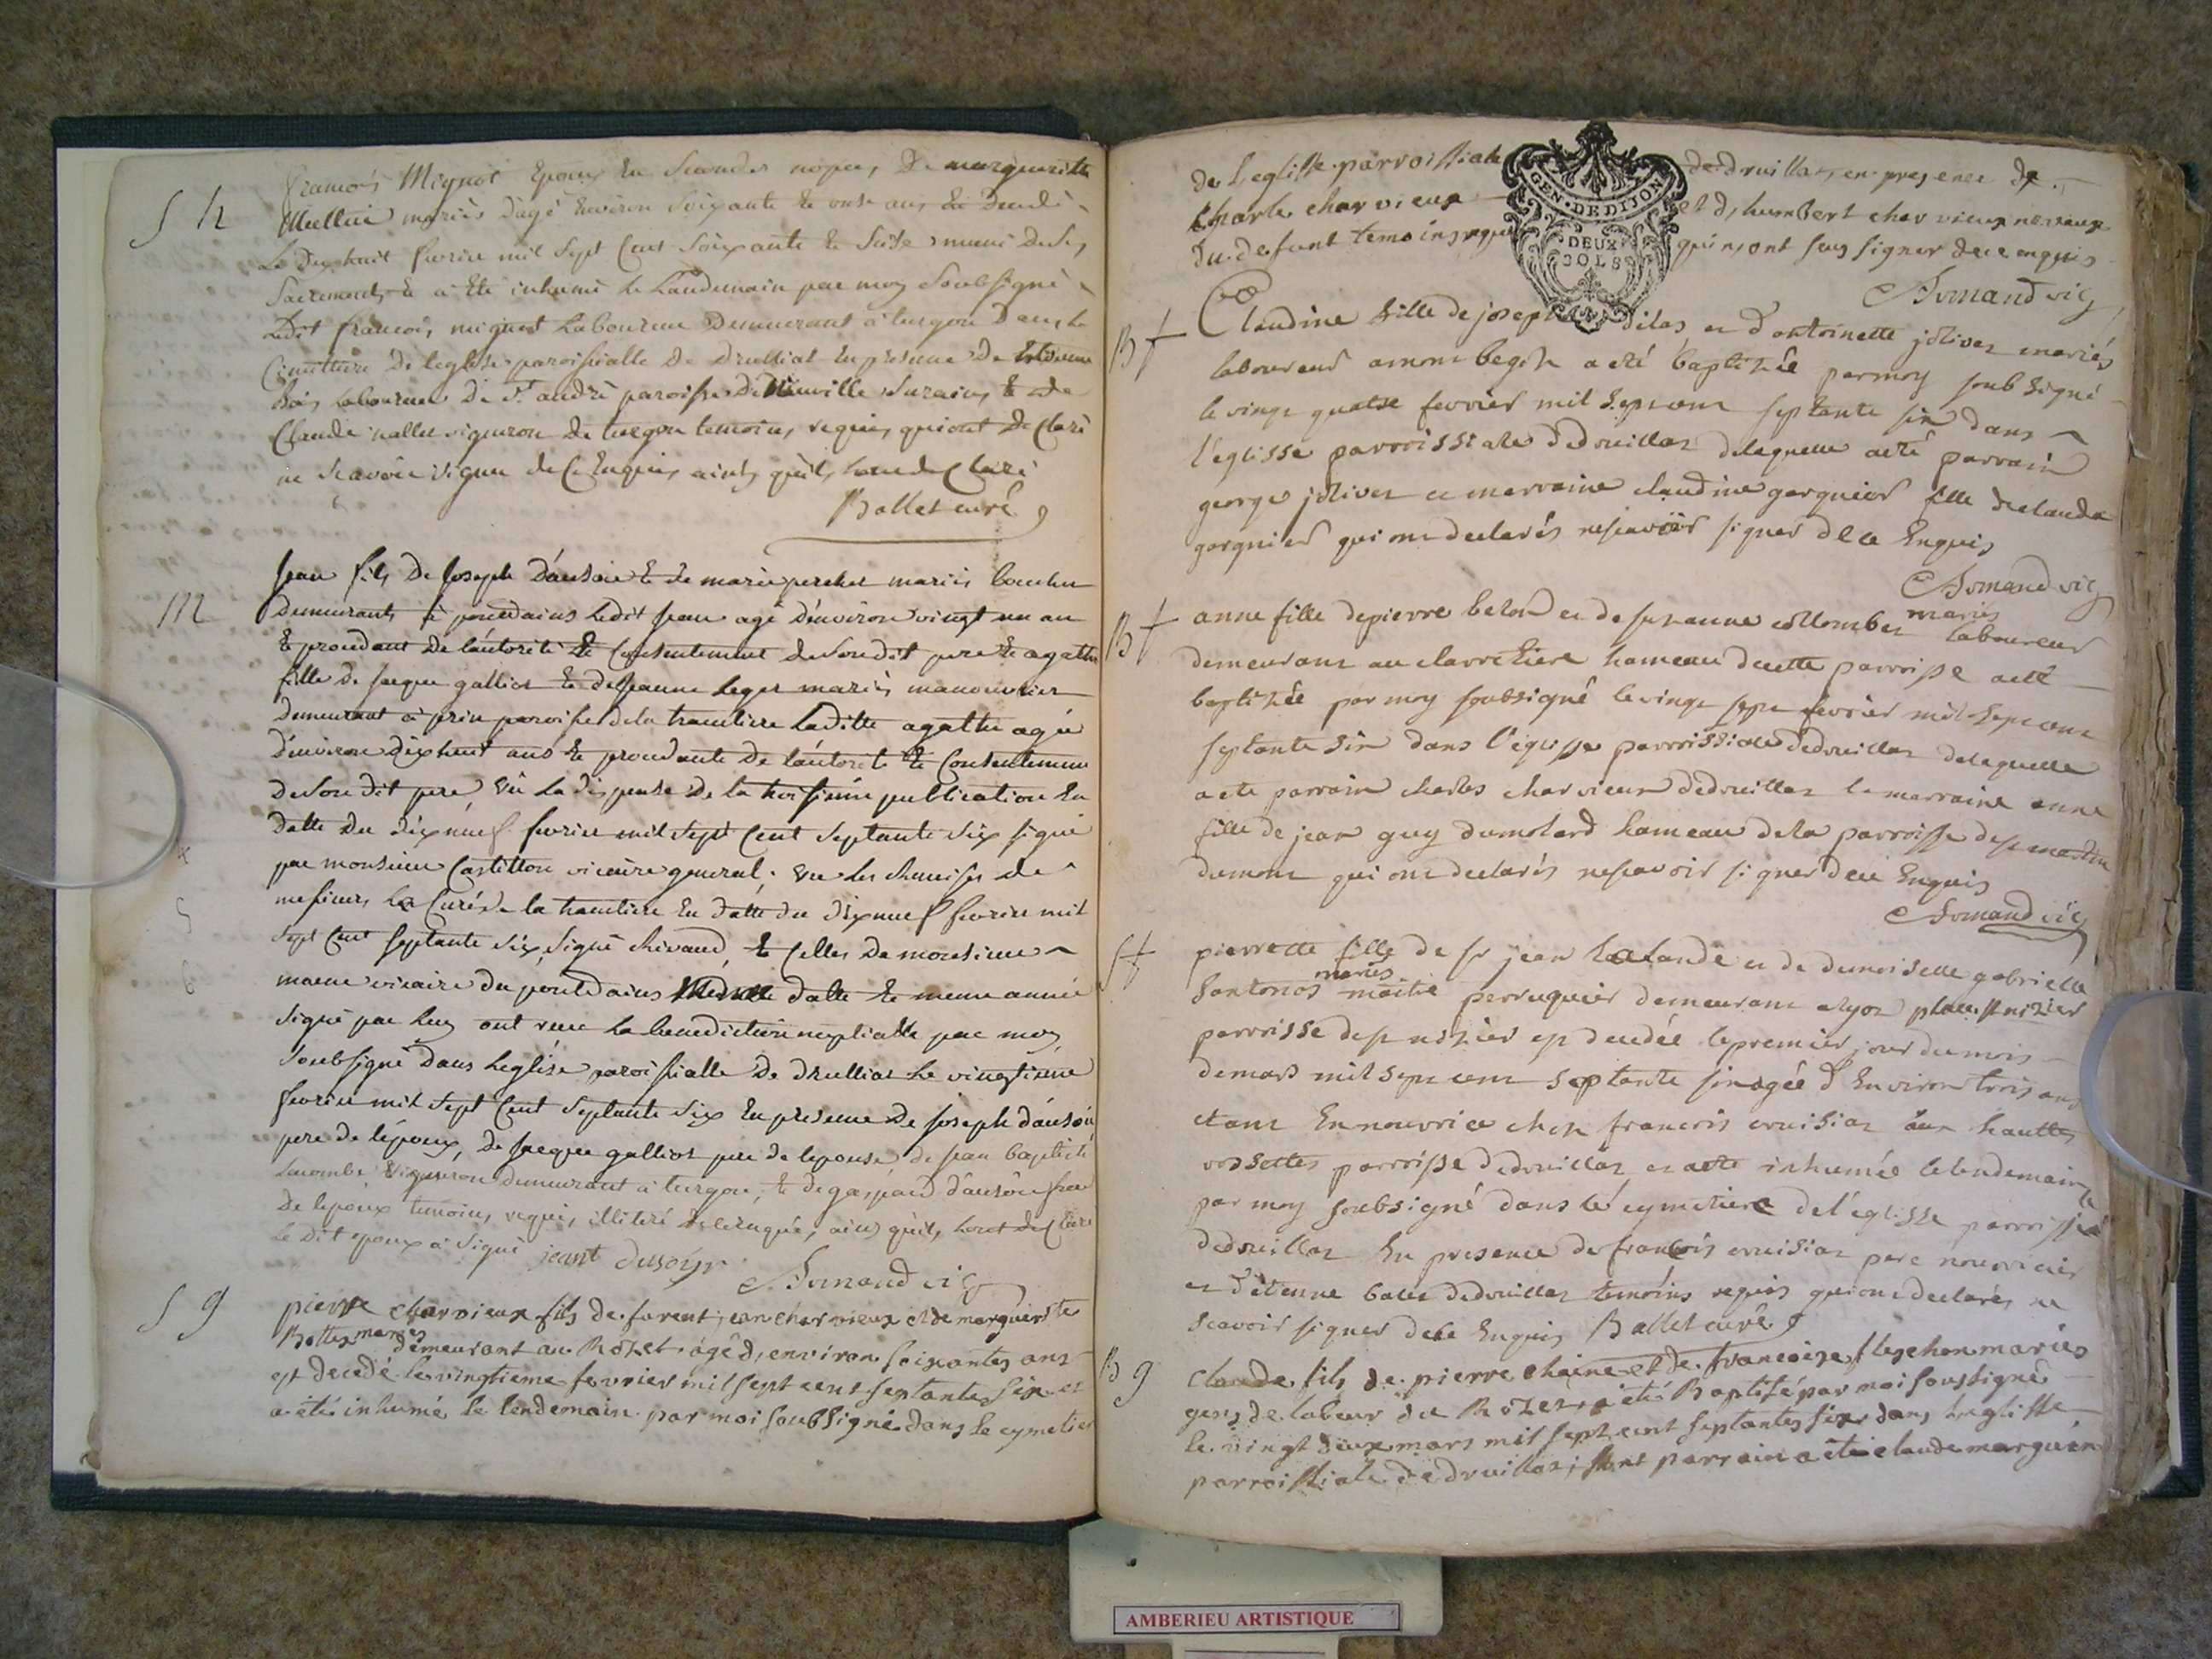 S h
françois Mignot Epoux En Secondes nopces De margueritte
mariés d'agé Environ Soixante & onze ans Est Decedé
Le Dix huit fevrier mil Sept Cent Soixante & Seise muni De Ses
Sacrements & a Eté inhumé le Landemain par moy Soubsigné
Ledit françois mignot Laboureur Demeurant à turgon Dans le
Cimettiere De leglise paroissialle De Druilliat En presence De Estienne
Bois laboureur De St andré paroisse De Neuville Surains & De
Claude vallet vigneron De turgon temoins, requis, qui ont De Claré
ne Scavoir signer de Ce Enquis, ainsy qu'ils l'ont de Claré
Ballet curé
M
Jean fils De Joseph D'ausoir & De marie perchet mariés boucher
Demeurants à pontdains Ledit Jean agé D'environ vingt un an
& procedant De l'autorité & Consentement De Son dit pere & agathe
fille De Jacque galliot & De Jeanne leger mariés manouvrier
Demeurant à prin paroisse De la tranclière Laditte agathe agée
D'environ Dix huit ans & procedante De l'autorité & Consentement
De Son dit pere vû La dispense De la troisieme publication En
Datte Du Dix neuf fevrier mil Sept Cent Septante Six signé
par monsieur Castillon vicaire general, vu les remises De
messieurs Le Curé De la tranclière En Datte Du Dix neuf fevrier mil
Sept Cent Septante Six, Signé chivaud, & Celles De monsieur
vicaire Du pontdains meme datte & meme année
Signé par luy ont reçu la benediction nuptialle par moy
Soubsigné Dans Leglise paroissialle De Druilliat Le vingtieme
fevrier mil Sept Cent Septante Six En presence De Joseph d'ausoir
pere de lépoux, de Jacque galliot pere de lepouse, de Jean baptiste
Lacombe vigneron Demeurant à turgon, & De gaspard d'ausoir frere
De lepoux temoins, requis, illiteré De Ce enquis, ainsy qu'ils l'ont de Claré
Le Dit epoux a Signé jeant dusoir
Armand vic
S 9
pierre charvieux fils de furent jean charvieux et de marguerite
Bottex mariés demeurant au Rozet agé d'environ soixantes ans
est decedé le vingtieme fevrier mil sept cent septantes six et
a été inhumé le lendemain par moi soubsigné dans le cymetier
de L'eglisse parroissiale de druillat, en presence de
Charle charvieux et d'humbert charvieux neveux
du defunt temoins requis qui n'ont seus signer de ce enquis
Armand vic
GEN. DE DIJON
DEUX SOLS
B f
Claudine fille de joseph dilas et d'antoinette jolivet mariés
laboureur amont begoz a eté baptizée par moy soubsigné
le vingt quatre fevrier mil sept cent septante six dans
l'eglisse parroissiale dedruillat delaquelle a eté parrain
george jolivet et marraine claudine gorgnier fille de claude
gorgnier qui ont declarés nescavoir signer de ce Enquis
Armand vic
B f
anne fille de pierre belon et de suzanne collombet mariés laboureur
demeurant au clavreliere hameau de cette parroisse a eté
baptizée par moy soubsigné le vingt sept fevrier mil sept cent
septante six dans l'eglisse parroissiale dedruillat delaquelle
a eté parrain charles charvieux dedruillat la marraine anne
fille de jean guy dumolard hameau de la parroisse de st martin
dumont qui ont declarés nescavoir signer de ce Enquis
Armand vic
S f
pierrette fille de sr jean Lalande et de demoiselle gabrielle
Santonos mariés maitre perruquier demeurant alyon place st nizier
parroisse de st nizier est decedée le premier jour du mois
de mars mil sept cent septante six agée d'Environ trois ans
etant En nourrice chez francois cruisiat aux hauttes
rossettes parroisse dedruillat et a eté inhumée lelendemain
par moy soubsigné dans le cymetiere de l'église parroissial
dedruillat En presence de francois cruisiat pere nourricier
et d'etienne balet dedruillat temoins requis qui ont declarés ne
scavoir signer de ce Enquis Ballet curé
B g
Claude fils de pierre chaine et de francoise flechon mariés
gens de labeur du Rozet, a eté Baptisé par moi soussigné
le vingt deux mars mil sept cent septantes six dans l'eglisse
parroissiale de druillat; sont parrain a eté claude marguin
AMBERIEU ARTISTIQUE